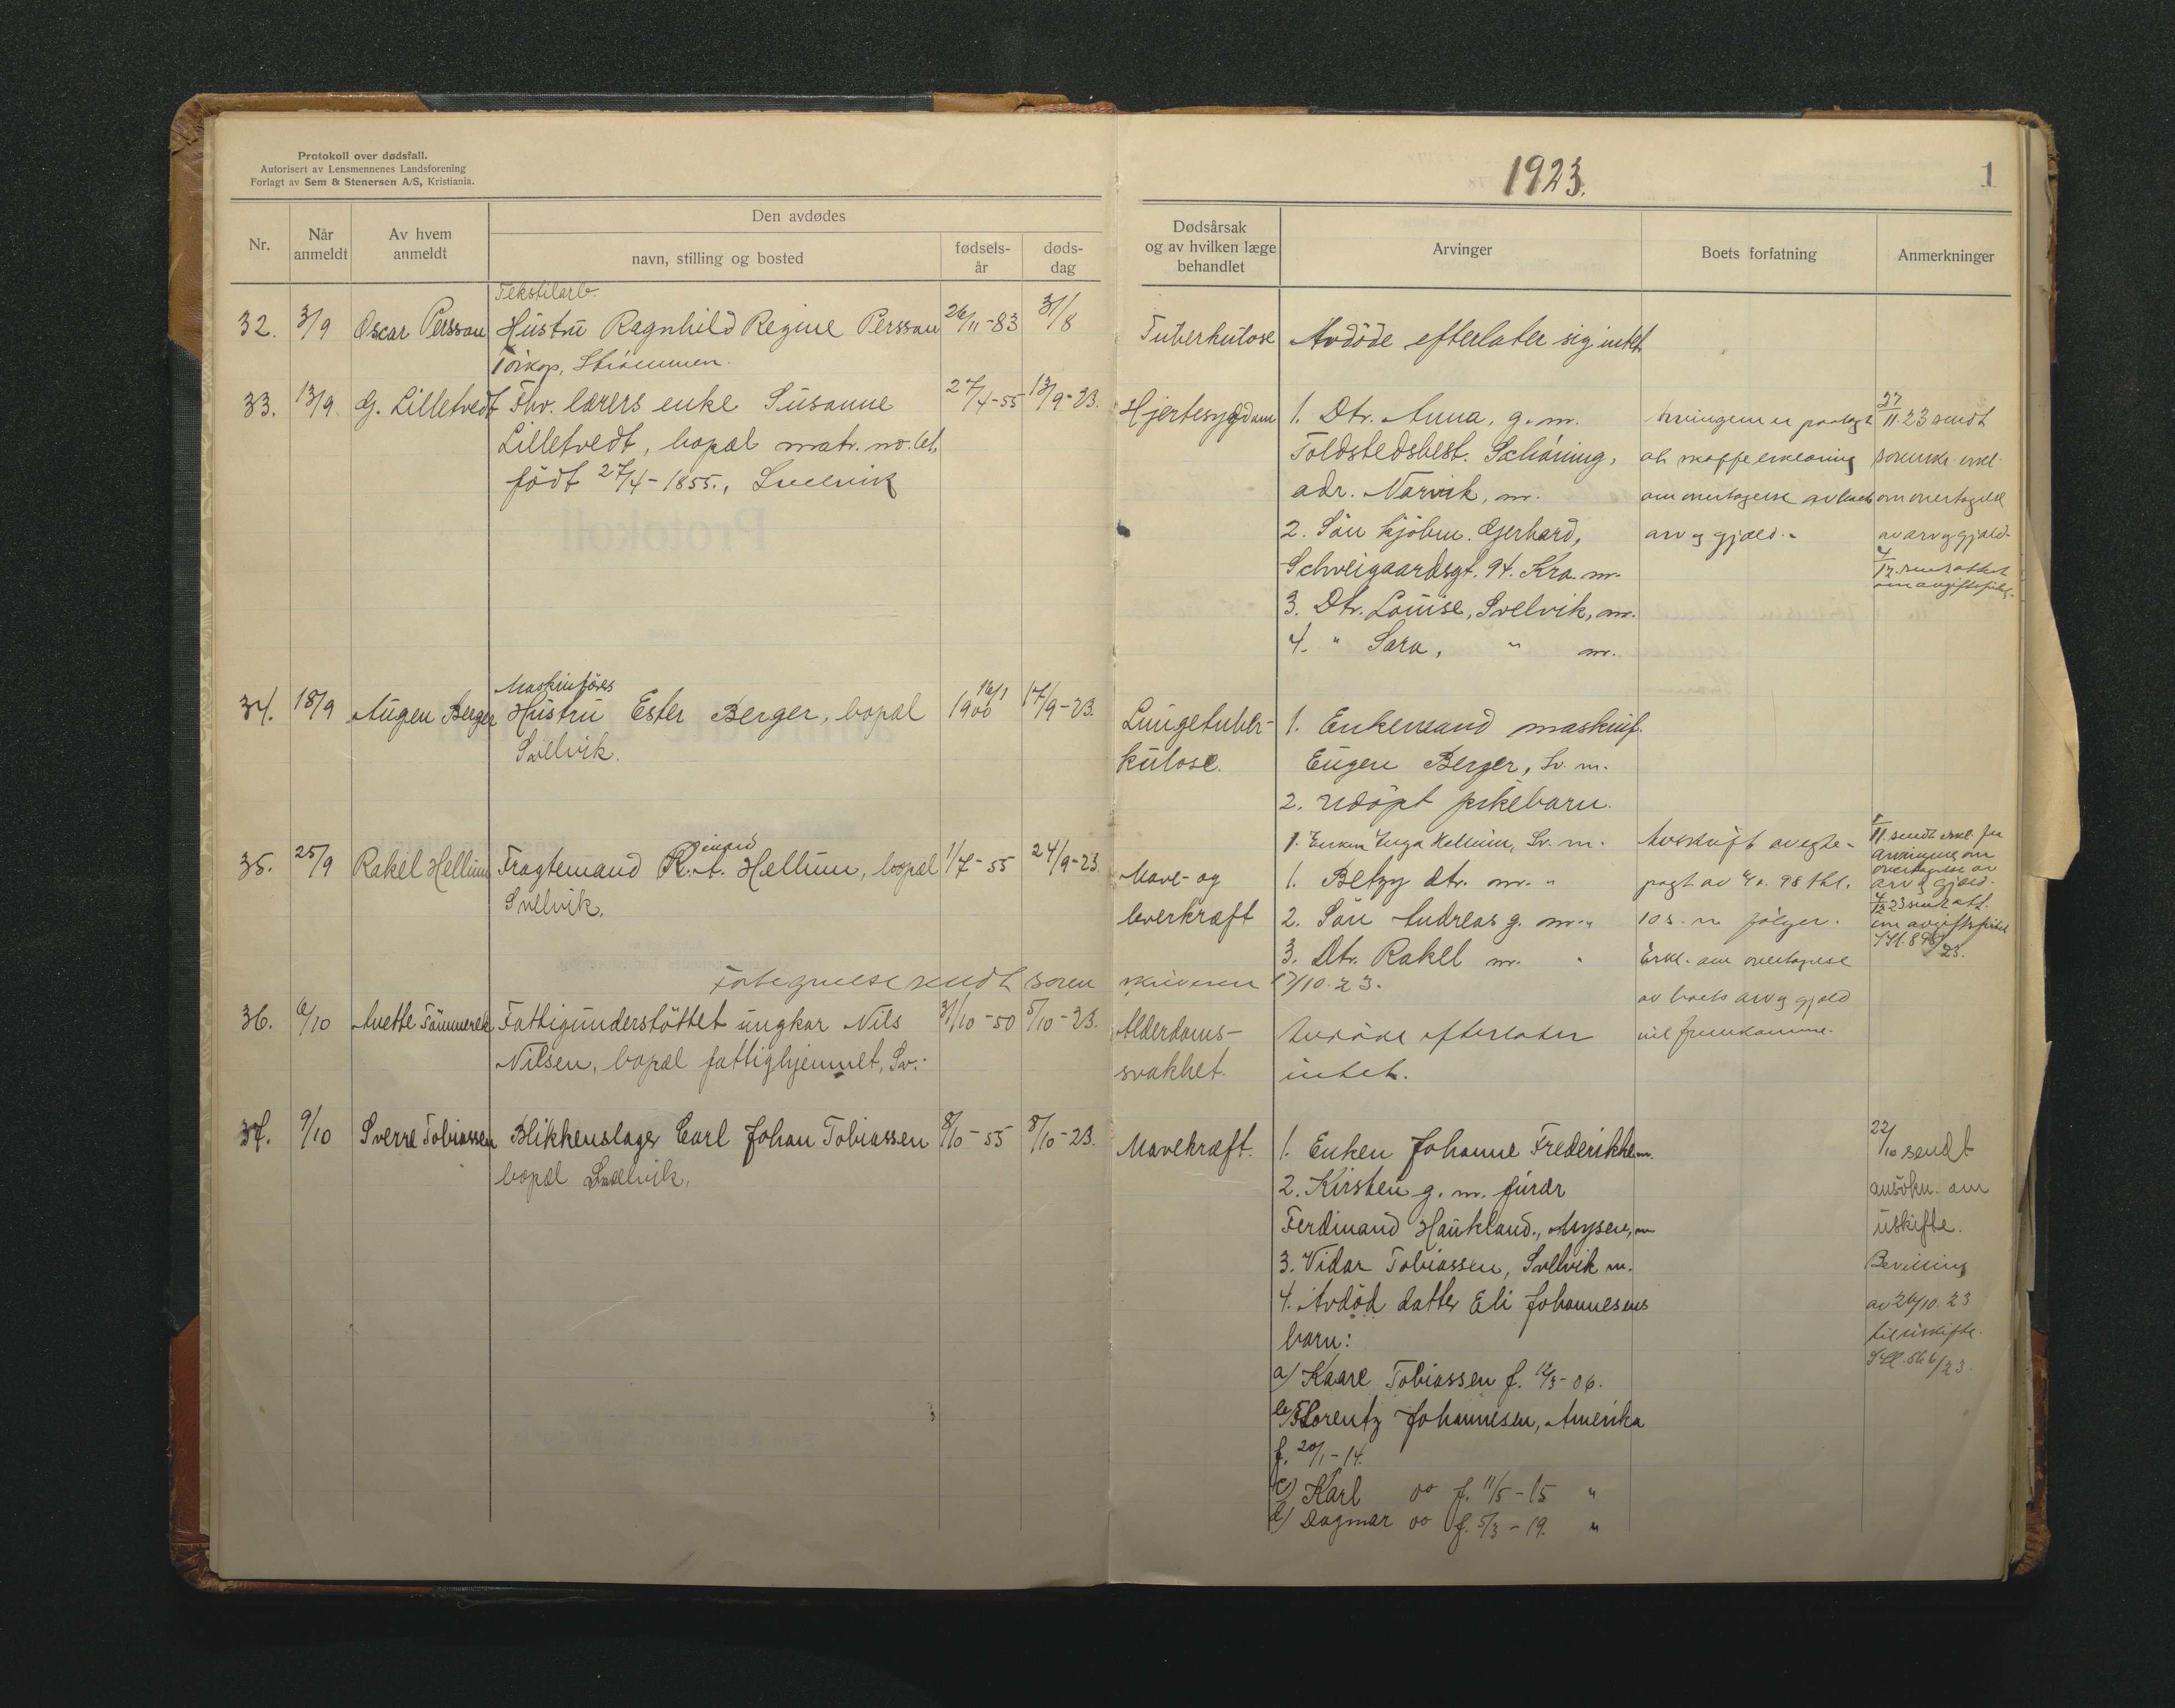 Protokoll over dødsfall.
Autorisert av Lensmennenes Landsforening
Forlagt av Sem & Stenersen A/S, Kristiania.
1923.
1
Nr.
Når anmeldt
Av hvem anmeldt
Den avdødes
navn, stilling og bosted
fødsels-år
døds-dag
Dødsårsak og av hvilken læge behandlet
Arvinger
Boets forfatning
Anmerkninger
Tekstilarb.
32. 3/9 Oscar Persson Hustru Ragnhild Regine Persson 26/11-83 31/8 Tuberkulose Avdöde efterlater sig intet
Törkop, Strömmen.
33. 13/9 G. Lilletvedt Fhv. lærers enke Susanne 27/4-55 13/9-23. Hjertesygdom
Lilletvedt, bopæl matr. no. let,
födt 27/4-1855., Svelvik
1. Dtr. Anna, g. m.
Toldstedsbest. Schöning,
adr. Narvik, m.
2. Sön kjöbm. Gerhard,
Schweigaardsgt. 94. Kra. m.
3. Dtr. Louise, Svelvik, m.
4. " Sara, " m.
Arvingene er paalagt
at skaffe erklæring
om overtagelse av boets
arv og gjæld.
27/11.23 sendt
sorenskr. erkl.
om overtagelse
av arv og gjæld.
4/12. sendt attest
om avgiftsfrihet.
Maskinförer
34. 18/9 Augen Berger Hustru Ester Berger, bopæl 16/1 1900 17/9-23.
Svelvik.
Lungetuber-
kulose.
1. Enkemand maskinf.
Eugen Berger, Sv. m.
2. Udöpt pikebarn.
35. 25/9 Rakel Hellum Fragtemand R. A. Hellum, bopæl 1/7-55 24/9-23.
Svelvik.
Mave- og
leverkræft
1. Enken Inga Hellum, Sv. m.
1. Betzy dtr. m. "
2. Sön Andreas g. m. "
3. Dtr. Rakel m. "
Avskrift av egte-
pagt av
følger.
Erkl. om overtagelse
av boets arv og gjæld
vil fremkomme.
11. sendt erkl. fra
arvingene om
overtagelse av
arv og gjæld.
4/12 23 sendt att.
om avgiftsfrihet
Fortegnelse sendt sorenskriveren 17/10.23.
36. 6/10 Anette Tömmerek Fattigunderstöttet ungkar Nils 31/10-50 5/10-23.
Nilsen, bopæl fattighjemmet, Sv.
Alderdoms-
svakhet.
Avdöde efterlater
intet.
37. 9/10 Sverre Tobiassen Blikkenslager Carl Johan Tobiassen 8/10-55 8/10-23. Mavekræft.
bopæl Svelvik.
1. Enken Johanne Frederikke m.
2. Kirsten g. m. furdr
Ferdinand Haukland., Mysen, m
3. Vidar Tobiassen, Svelvik m.
4. Avdöd datter Eli Johannesens
barn:
a) Kaare Tobiassen f. 12/3-06.
b) Lorentz Johannesen, Amerika
f. 20/1-14.
c) Karl do f. 11/5-15 "
d) Dagmar do f. 5/3-19. "
22/10 sendt
ansökn. om
uskifte.
Bevilling
av 26/10.23
til uskifte.